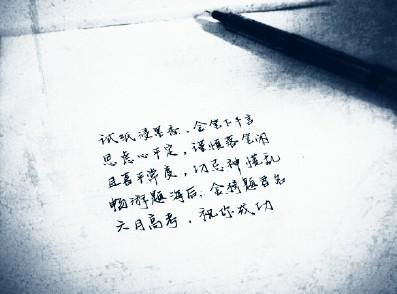 试纸浸墨香，全笔下千言
思虑心平定，谨慎落笔闲
且喜平常度，切忌神慌乱
畅游题海后，金榜题君名
六月高考，祝你成功